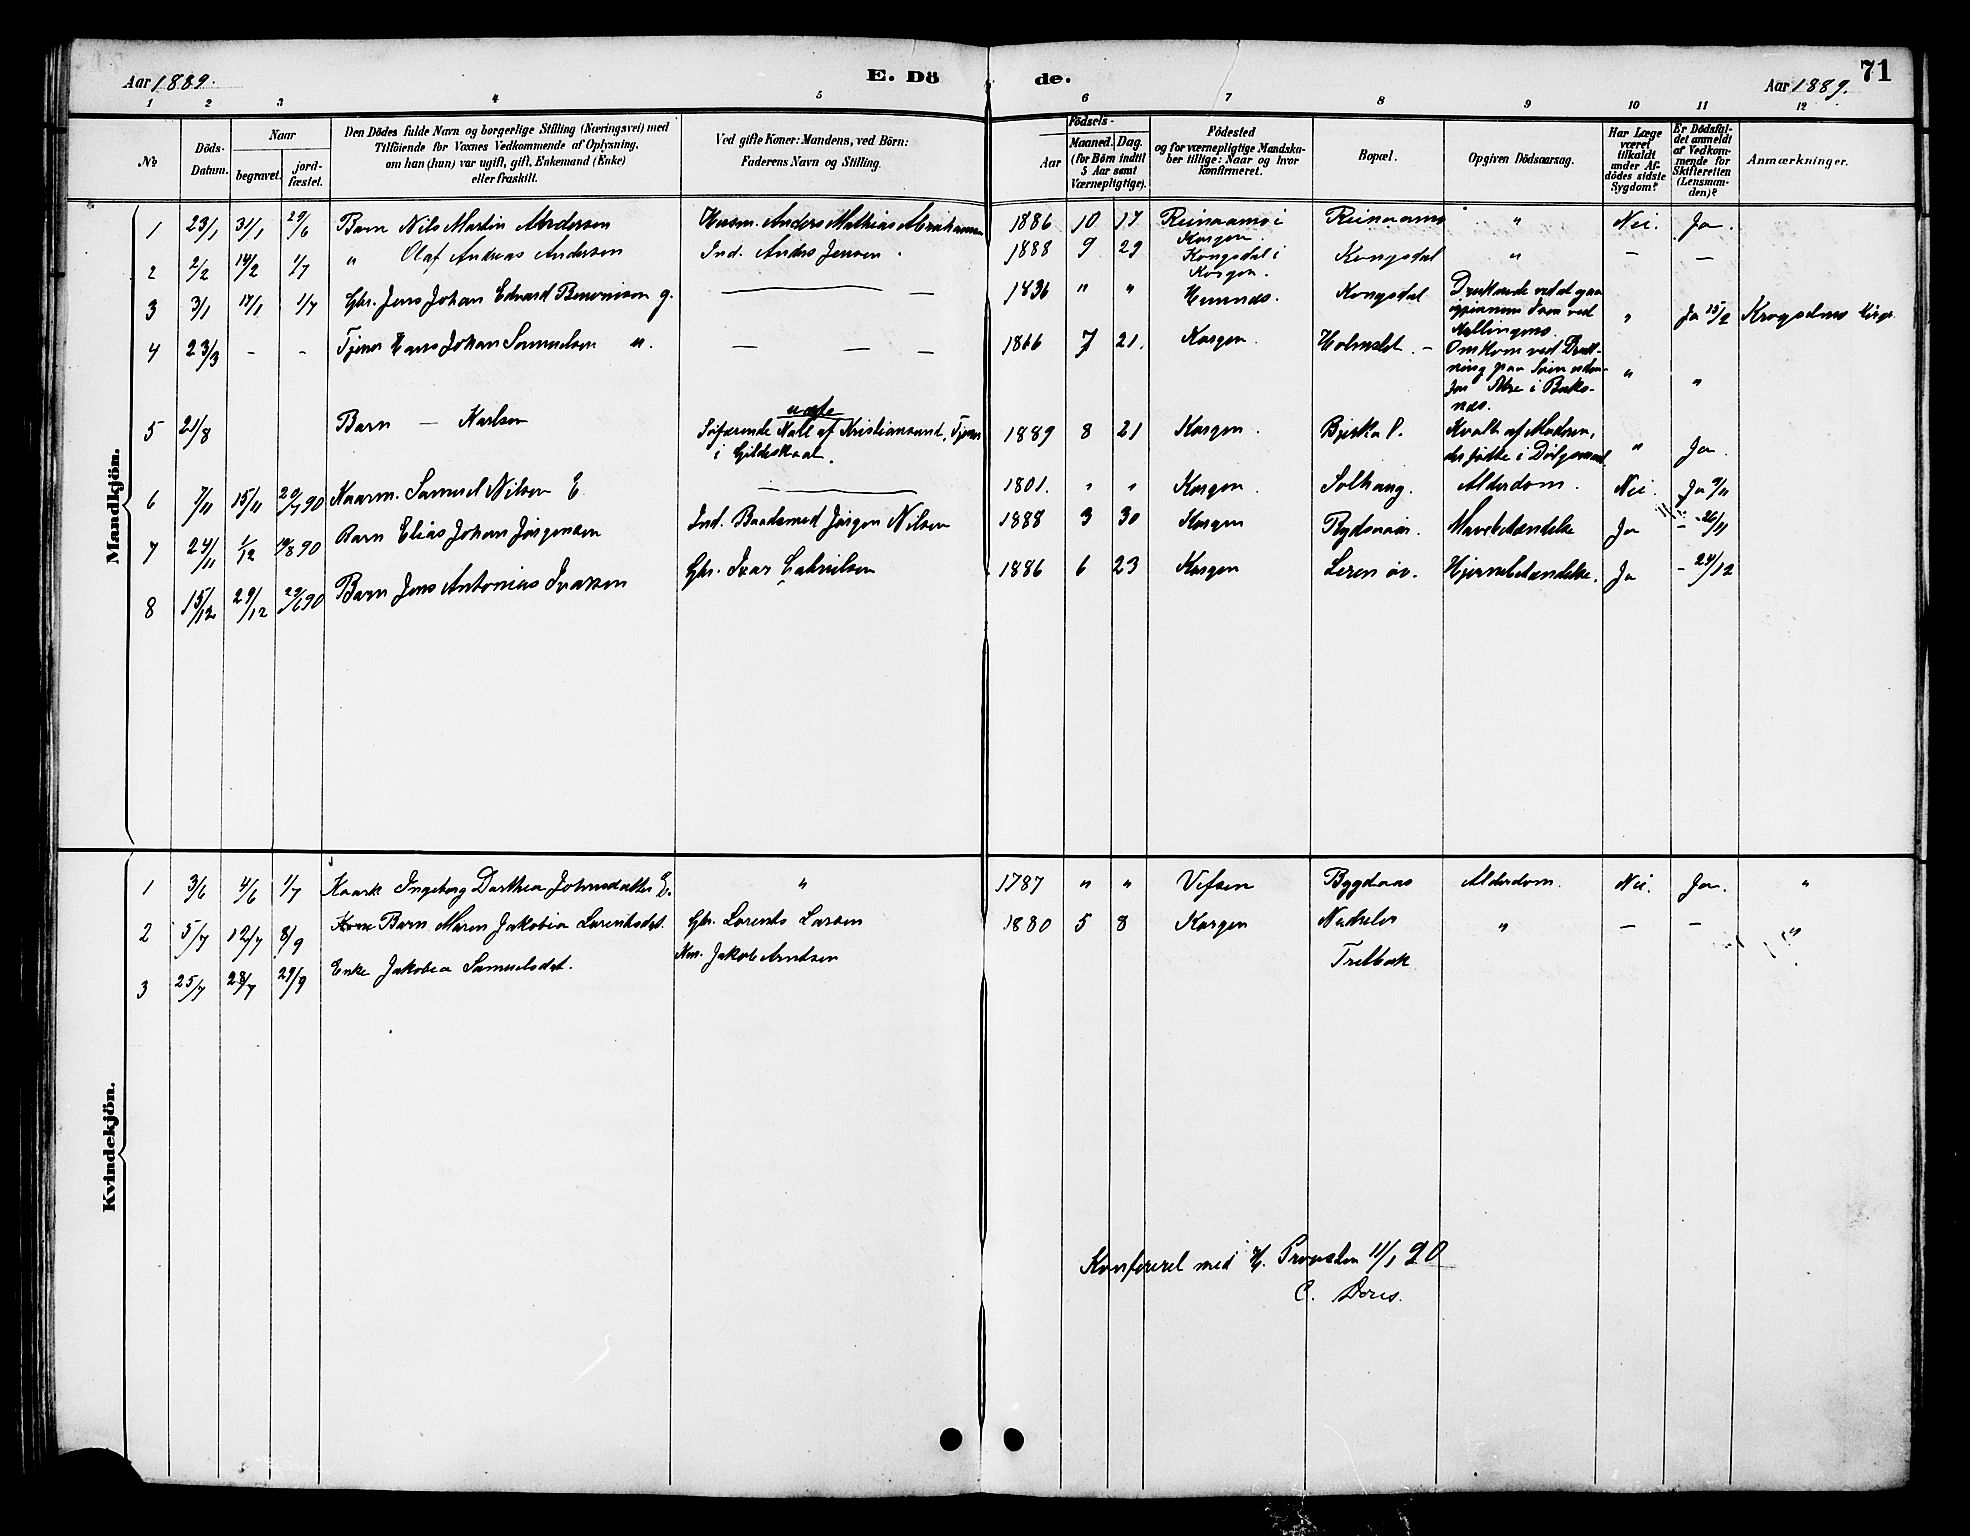 Aar 1889. E. Dö de. Aar 1889. 71
1 2 3 4 5 6 7 8 9 10 11 12
No
Döds-Datum.
Naar
begravet.
jord-fæstet.
Den Dödes fulde Navn og borgerlige Stilling (Næringsvei) med
Tilföiende for Voxnes Vedkommende af Oplysning,
om han (hun) var ugift, gift, Enkemand (Enke)
eller fraskilt.
Ved gifte Koner: Mandens, ved Börn:
Faderens Navn og Stilling.
Födsels-
Aar
Maaned. Dag.
(for Börn indtil
5 Aar samt
Værnepligtige).
Födested
og for værnepligtige Mandska-
ber tillige: Naar og hvor
konfirmeret.
Bopæl.
Opgiven Dödsaarsag.
Har Læge
været
tilkaldt
under Af-
dödes sidste
Sygdom?
Er Dödsfal-
det anmeldt
af Vedkom-
mende for
Skifteretten
(Lensman-
den)?
Anmærkninger.
Mandkjön.
1 23/1 31/1 29/6 Barn Nils Martin Andersen Husm. Anders Mathias Abrahamsen 1886 10 17 Reinaamo i Korgen Reinaamo " Nei. Ja.
2 2/2 14/2 1/7 " Olaf Andreas Andersen Ind. Anders Jensen. 1888 9 29 Kongsdal i Korgen. Kongsdal " — —
3 3/1 17/1 1/7 Gbr. Jens Johan Edvard Benonisen g. — — 1836 " " Hemnæs. Kongsdal Druknede ved at gaa igjennem Isen ved " Ja 15/2
4 23/3 - - Tjener Hans Johan Samuelsen u. — — — 1866 7 21. Korgen. — Omkom ved Drukning paa " "
5 21/8 Barn — Karlsen uægte
Søfarende af Kristiansund, Tjener
i Gildeskaal. 1889 8 21 Korgen. Kvalt af Moderen, " Ja.
6 7/11 15/11 20/7 90 Kaarm. Samuel Nilsen E. — 1801. " " Korgen. Solhaug. Alderdom. Nei. Ja 9/11
7 24/11 1/12 19/8 90 Barn Elias Johan Jørgensen Ind. Baadsmed Jørgen Nilsen 1888 3 30 Korgen Bygdaas. Mavebetændelse Ja - 26/11
8 15/12 29/12 29/6 90 Barn Jens Antonius Ivarsen Gbr. Ivar Gabrielsen 1886 6 23 Korgen Leren øv. Hjernebetændelse. Ja - 24/12
Kvindekjön.
1 3/6 4/6 1/7 Kaark. Ingeborg Dorthea Johnsdatter E. " 1787 " " Vefsen Bygdaas Alderdom. Nei. Ja. "
2 5/7 12/7 8/9 Barn Maren Jakobia Larentsdat. Gbr. Lorents Larsen 1880 5 8 Korgen " — — "
3 25/7 28/7 29/9 Enke Jakobea Samuelsdat. Jakob Arntsen
Konfereret med H. Provsten 11/1 90
C.